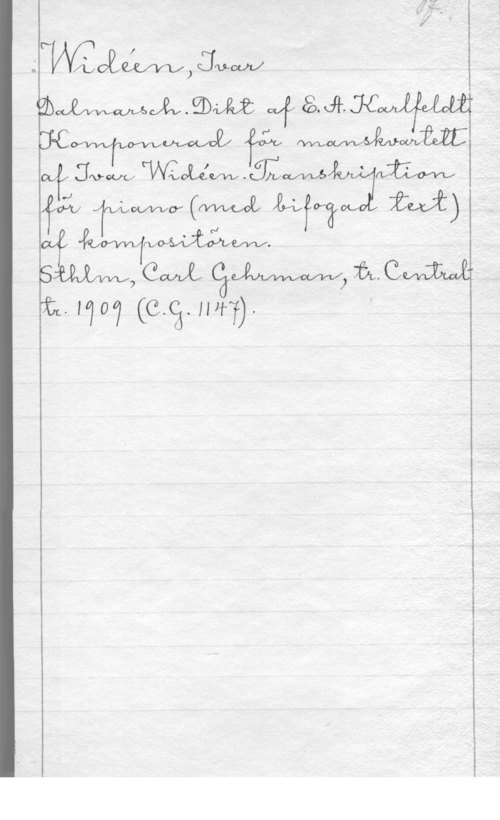 Widéen, Ivar
Dalmarsch. Dikt af E. A. Karlfeldt
Komponerad för manskvartett
af Ivar Widéen. Transkription
för piano (med bifogad text)
af kompositören.
Sthlm, Carl Gehrman, tr. Central-
tr. 1909 (C.G. 1147).